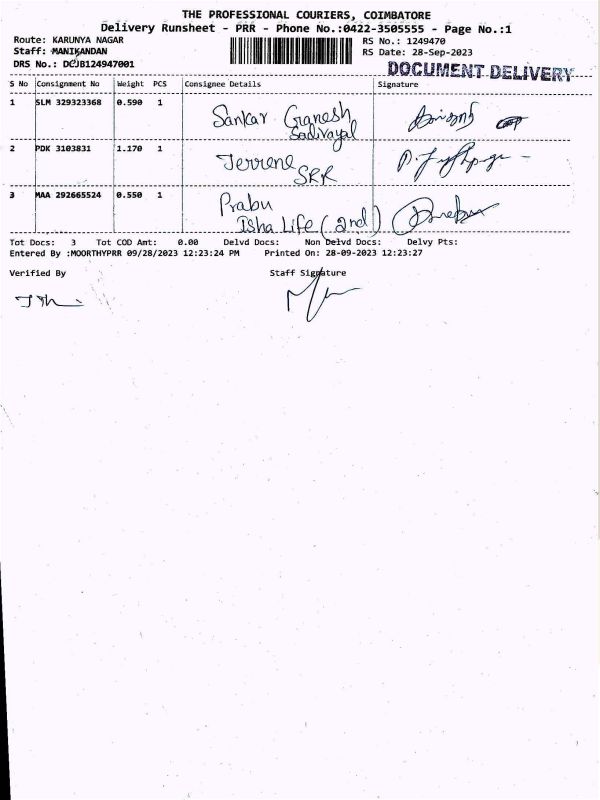 THE PROFESSIONAL COURIERS, COIMBATORE
Delivery Runsheet - PRR - Phone No.:0422-3505555 - Page No.:1
Route: KARUNYA NAGAR RS No.: 1249470
Staff: MANIKANDAN RS Date: 28-Sep-2023
DRS No.: DCJB124947001 DOCUMENT DELIVERY
S No Consignment No Weight PCS Consignee Details Signature
1 SLM 329323368 0.590 1 Sankar Ganesh
Sadivayal
2 PDK 3103831 1.170 1 Jerrene
SRR
3 MAA 292665524 0.550 1 Prabu
Isha Life (2nd)
Tot Docs: 3 Tot COD Amt: 0.00 Delvd Docs: Non Delvd Docs: Delvy Pts:
Entered By :MOORTHYPRR 09/28/2023 12:23:24 PM Printed On: 28-09-2023 12:23:27
Verified By Staff Signature